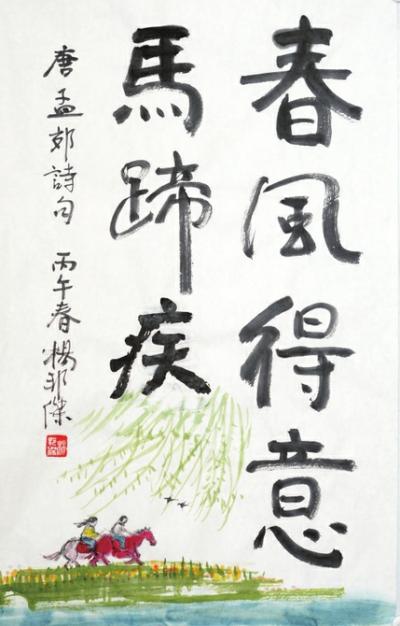 春風得意
馬蹄疾
唐孟郊詩句 丙午春 楊邦傑